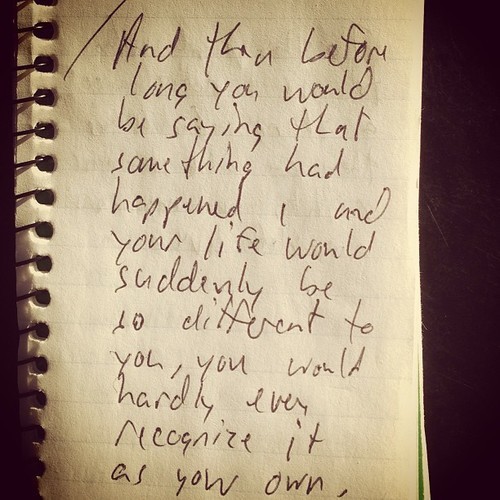 And then before
long you would
be saying that
something had
happened, and
your life would
suddenly be
so different to
you, you would
hardly even
recognize it
as your own.